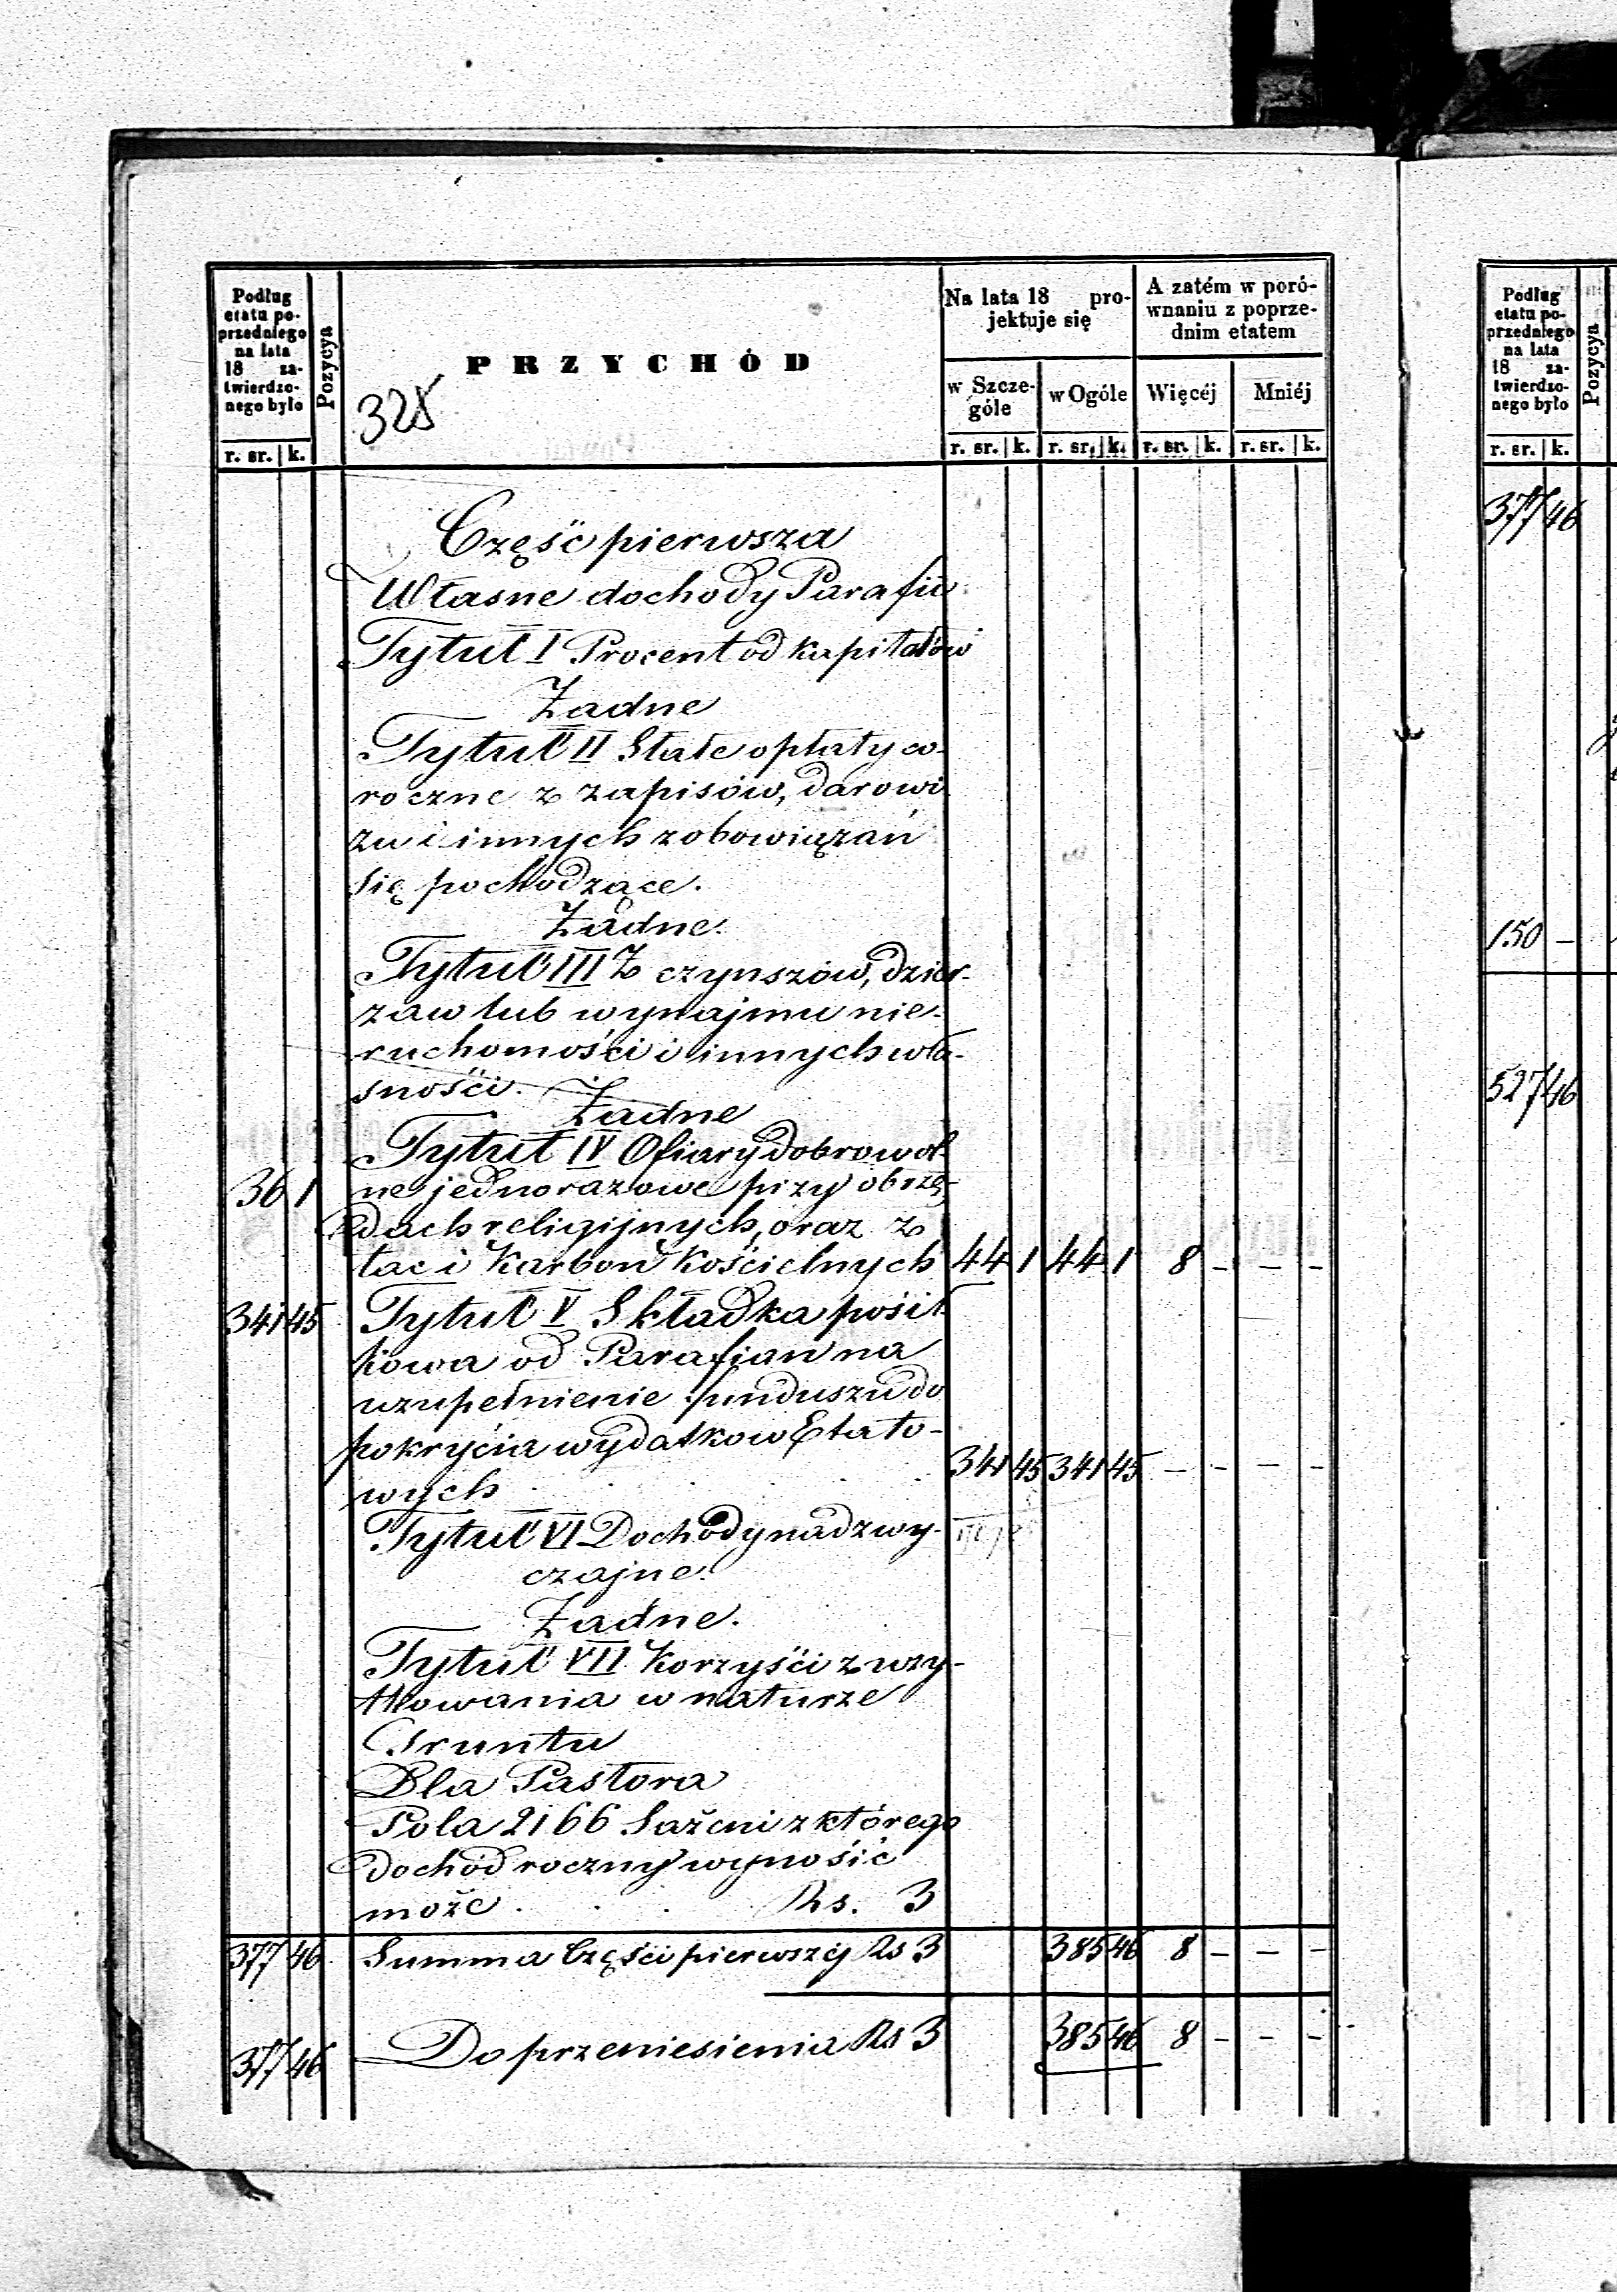 Podług etatu poprzedniego na lata 18 zatwierdzonego było
Pozycya
PRZYCHÓD
Na lata 18 projektuje się
A zatém w porównaniu z poprzednim etatem
w Szczególe
w Ogóle
Więcéj
Mniéj
r. sr. k.
r. sr. k. r. sr. k. r. sr. k. r. sr. k.
325
Część pierwsza
Własne dochody Parafii
Tytuł I Procent od kapitałów
Żadne
Tytuł II Stałe opłaty co-
roczne z zapisów, darowi
zn i innych zobowiązań
się pochodzące.
Żadne.
Tytuł III Z czynszów, dzier-
zaw lub wynajmu nie-
ruchomości i innych wła-
sności.
Żadne
Tytuł IV Ofiary dobrowol-
36 1 ne jednorazowe przy obrzę-
dach religijnych, oraz z
tac i Karbon Kościelnych 44 1 44 1 8 - - -
341 45 Tytuł V Składka posił-
kowa od Parafian na
uzupełnienie funduszu do
pokrycia wydatkow Etato-
wych 341 45 341 45 - - - -
Tytuł VI Dochody nadzwy-
czajne.
Żadne.
Tytuł VII Korzyści z uży-
tkowania w naturze
Gruntu
Dla Pastora
Pola 2166 Sażeni z którego
dochód roczny wynosić
może . . . Rs. 3
377 46 Summa Części pierwszej Rs 3 385 46 8 - - -
377 46 Do przeniesienia Rs 3 385 46 8 - - -
Podług etatu poprzedniego na lata 18 zatwierdzonego było
Pozycya
r. sr. k.
377 46
150 -
527 46